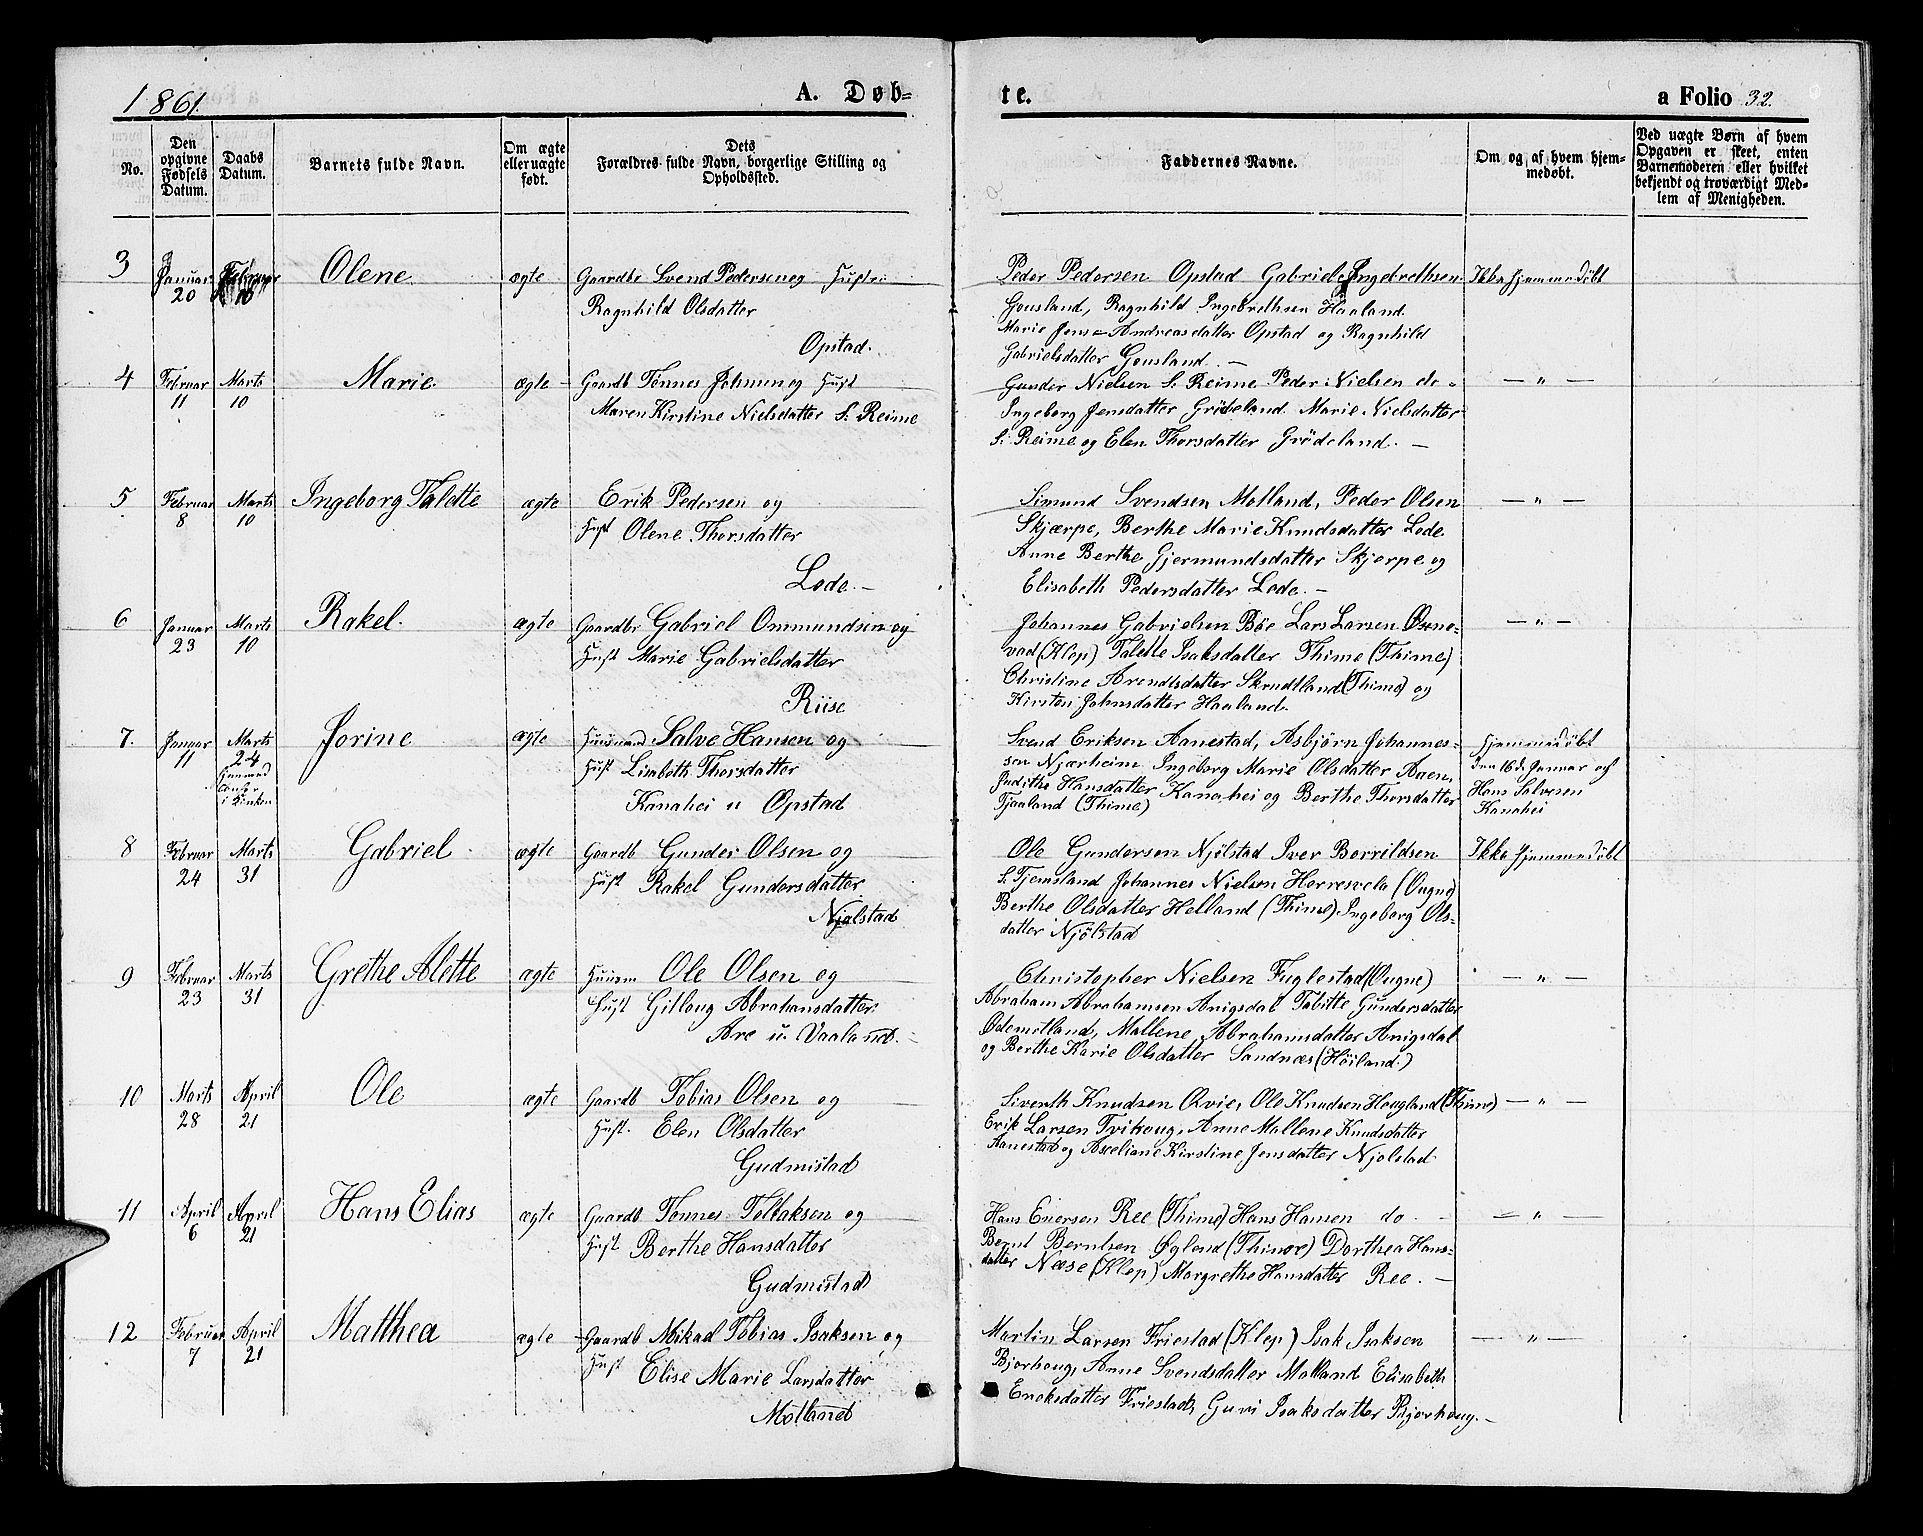 1861.
A. Døb-
te.
a Folio 32.
No.
Den opgivne Fødsels Datum.
Daabs Datum.
Barnets fulde Navn.
Om ægte eller uægte født.
Dets Forældres fulde Navn, borgerlige Stilling og Opholdssted.
Faddernes Navne.
Om og af hvem hjem-medøbt.
Ved uægte Børn af hvem Opgaven er skeet, enten Barnemoderen eller hvilket bekjendt og troværdigt Med-lem af Menigheden.
3 Januar 20 Februar 10 Olene ægte Gaardbr Svend Pedersen og Hustr:
Ragnhild Olsdatter
Opstad.
Peder Pedersen Opstad Gabriel Ingebrethsen
Gousland, Ragnhild Ingebrethsen Haaland.
Marie Jense Andreasdatter Opstad og Ragnhild
Gabrielsdatter Gousland. —
Ikke hjemmedøbt
4 Februar 11 Marts 10 Marie ægte Gaardb Tønnes Johnsen og Hust
Maren Kirstine Nielsdatter S. Reime
Gunder Nielsen S. Reime Peder Nielsen do
Ingeborg Jensdatter Grödeland. Marie Nielsdatter
S. Reime og Elen Thorsdatter Grödeland. —
— " —
5 Februar 8 Marts 10 Ingeborg Talette ægte Erik Pedersen og
Hust Olene Thorsdatter
Lode. —
Simund Svendsen Motland, Peder Olsen
Skjærpe, Berthe Marie Knudsdatter Lode
Anne Berthe Gjermundsdatter Skjerpe og
Elisabeth Pedersdatter Lode. —
— " —
6 Januar 23 Marts 10 Rakel. ægte Gaardbr Gabriel Ommundsen og
Hust Marie Gabrielsdatter
Riise
Johannes Gabrielsen Böe Lars Larsen Øksne-
vad (Klep) Talette Isaksdatter Thime (Thime)
Christine Arendtsdatter Skrudtland (Thime) og
Kirsten Johnsdatter Haaland.
— " —
7. Januar 11 Marts 24 Jorine ægte Huusmand Salve Hansen og
Hust Lisabeth Thorsdatter
Kanahei u Opstad
Svend Eriksen Aanestad, Asbjörn Johannes-
sen Njærheim Ingeborg Marie Olsdatter Aaen,
Judithe Hansdatter Kanahei og Berthe Thorsdatter
Tjaaland (Thime)
Hjemmedøbt
den 16de Januar af
Hans Salvesen
Kanahei
8 Februar 24 Marts 31 Gabriel ægte Gaardb Gunder Olsen og
Hust Rakel Gundersdatter
Njølstad
Ole Gundersen Njølstad Iver Berrildsen
S. Tjemsland Johannes Nielsen Herresvela (Ougne)
Berthe Olsdatter Helland (Thime) Ingeborg Ols-
datter Njölstad
Ikke hjemmedøbt
9 Februar 23 Marts 31 Grethe Alette ægte Huusm Ole Olsen og
Hust Gitlaug Abrahamsdatter
Are u. Vaaland. —
Christopher Nielsen Fuglestad (Ougne)
Abraham Abrahamsen Anigsdal Tabitte Gundersdatter
Ødemotland, Mallene Abrahamsdatter Anigsdal
og Berthe Karie Olsdatter Sandnæs (Høiland.)
— " —
10 Marts 28 April 21 Ole ægte Gaardb Tobias Olsen og
Hust. Elen Olsdatter
Gudmistad
Siverth Knudsen Qvie, Ole Knudsen Hougland (Thime)
Erik Larsen Tvihoug, Anne Mallene Knudsdatter
Aanestad og Aseliane Kirstine Jensdatter Njolstad
— " —
11 April 6 April 21 Hans Elias ægte Gaardb Tønnes Tollaksen og
Hust Berthe Hansdatter
Gudmistad
Hans Enersen Ree (Thime) Hans Hansen do.
Bernt Berntsen Øglend (Thime) Dorthea Hans-
datter Næse (Klep) Margrethe Hansdatter Ree. —
— " —
12 Februar 7 April 21 Matthea ægte Gaardb Mikal Tobias Isaksen og
Hust Elise Marie Larsdatter
Motland
Martin Larsen Friestad (Klep) Isak Isaksen
Bjorhoug, Anne Svendsdatter Motland Elisabeth
Enoksdatter Friestad, Guri Isaksdatter Bjorhoug. —
— " —